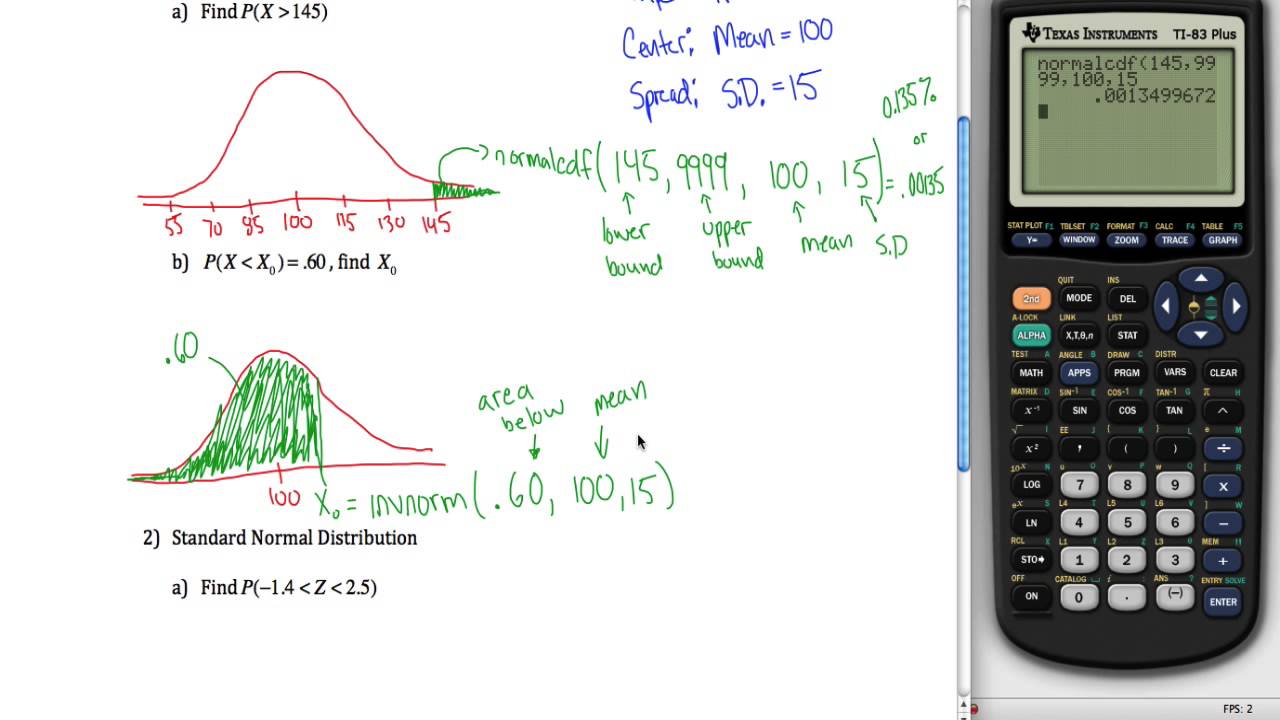 a) Find P(X > 145)
Center: Mean = 100
Spread: S.D. = 15
0.135%
or
normalcdf(145, 9999, 100, 15) = .00135
lower bound
upper bound
mean
S.D
55 70 85 100 115 130 145
b) P(X < X₀) = .60, find X₀
.60
area below
mean
100
X₀ = invnorm(.60, 100, 15)
2) Standard Normal Distribution
a) Find P(−1.4 < Z < 2.5)
TEXAS INSTRUMENTS TI-83 Plus
normalcdf(145,99
99,100,15
.0013499672
STAT PLOT F1 TBLSET F2 FORMAT F3 CALC F4 TABLE F5
Y= WINDOW ZOOM TRACE GRAPH
QUIT INS
2nd MODE DEL
A-LOCK LINK LIST
ALPHA X,T,θ,n STAT
TEST A ANGLE B DRAW C DISTR
MATH APPS PRGM VARS CLEAR
MATRIX D SIN⁻¹ E COS⁻¹ F TAN⁻¹ G π H
x⁻¹ SIN COS TAN ^
√ I EE J { K } L e M
x² , ( ) ÷
10ˣ N u O v P w Q [ R
LOG 7 8 9 ×
eˣ S L4 T L5 U L6 V ] W
LN 4 5 6 −
RCL X L1 Y L2 Z L3 θ MEM "
STO➔ 1 2 3 +
OFF CATALOG ⎵ i : ANS ? ENTRY SOLVE
ON 0 . (−) ENTER
FPS: 2